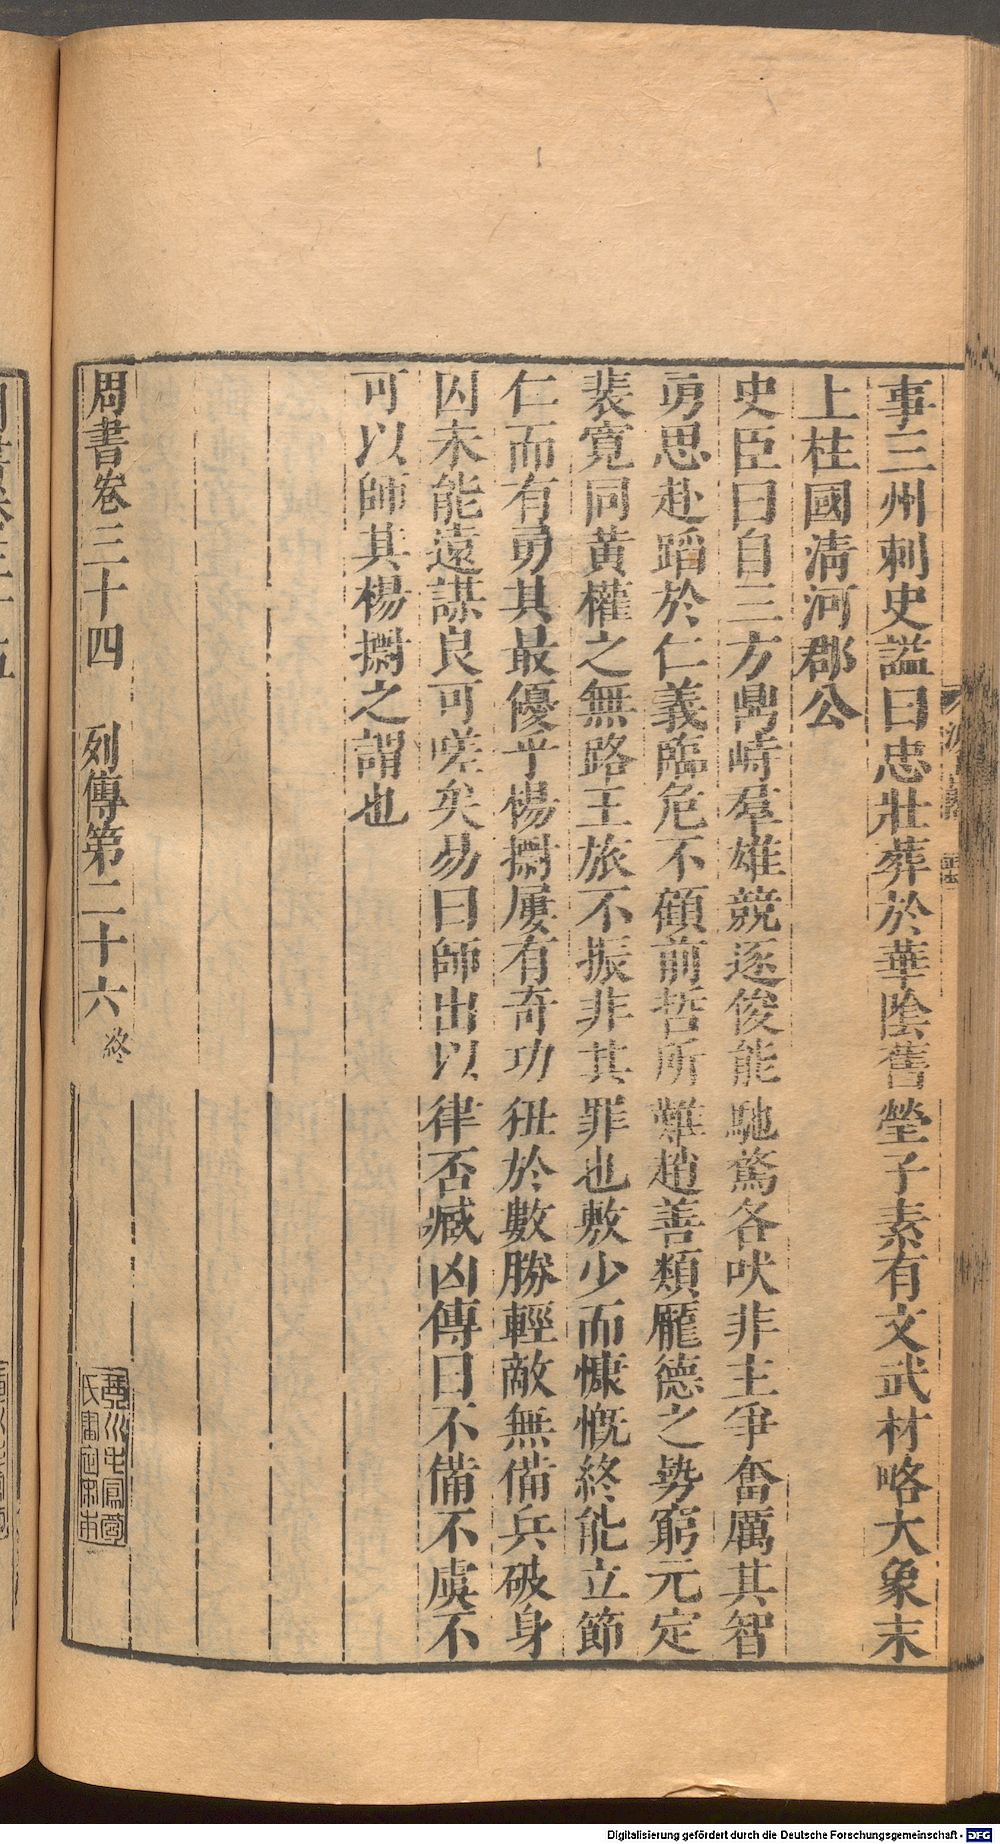 事三州刺史謚曰忠壯葬於華陰舊塋子素有文武材略大象末
上柱國淸河郡公
史臣曰自三方鼎峙羣雄競逐俊能馳騖各吠非主爭奮厲其智
勇思赴蹈於仁義臨危不顧前哲所難趙善類龐德之勢窮元定
裴寛同黃權之無路王旅不振非其罪也敷少而慷慨終能立節
仁而有勇其最優乎楊㯹屢有奇功狃於數勝輕敵無備兵破身
囚未能遠謀良可嗟矣易曰師出以律否臧凶傳曰不備不虞不
可以師其楊㯹之謂也
周書卷三十四 列傳第二十六 終
琴川毛鳳苞
氏審定宋本
Digitalisierung gefördert durch die Deutsche Forschungsgemeinschaft - DFG